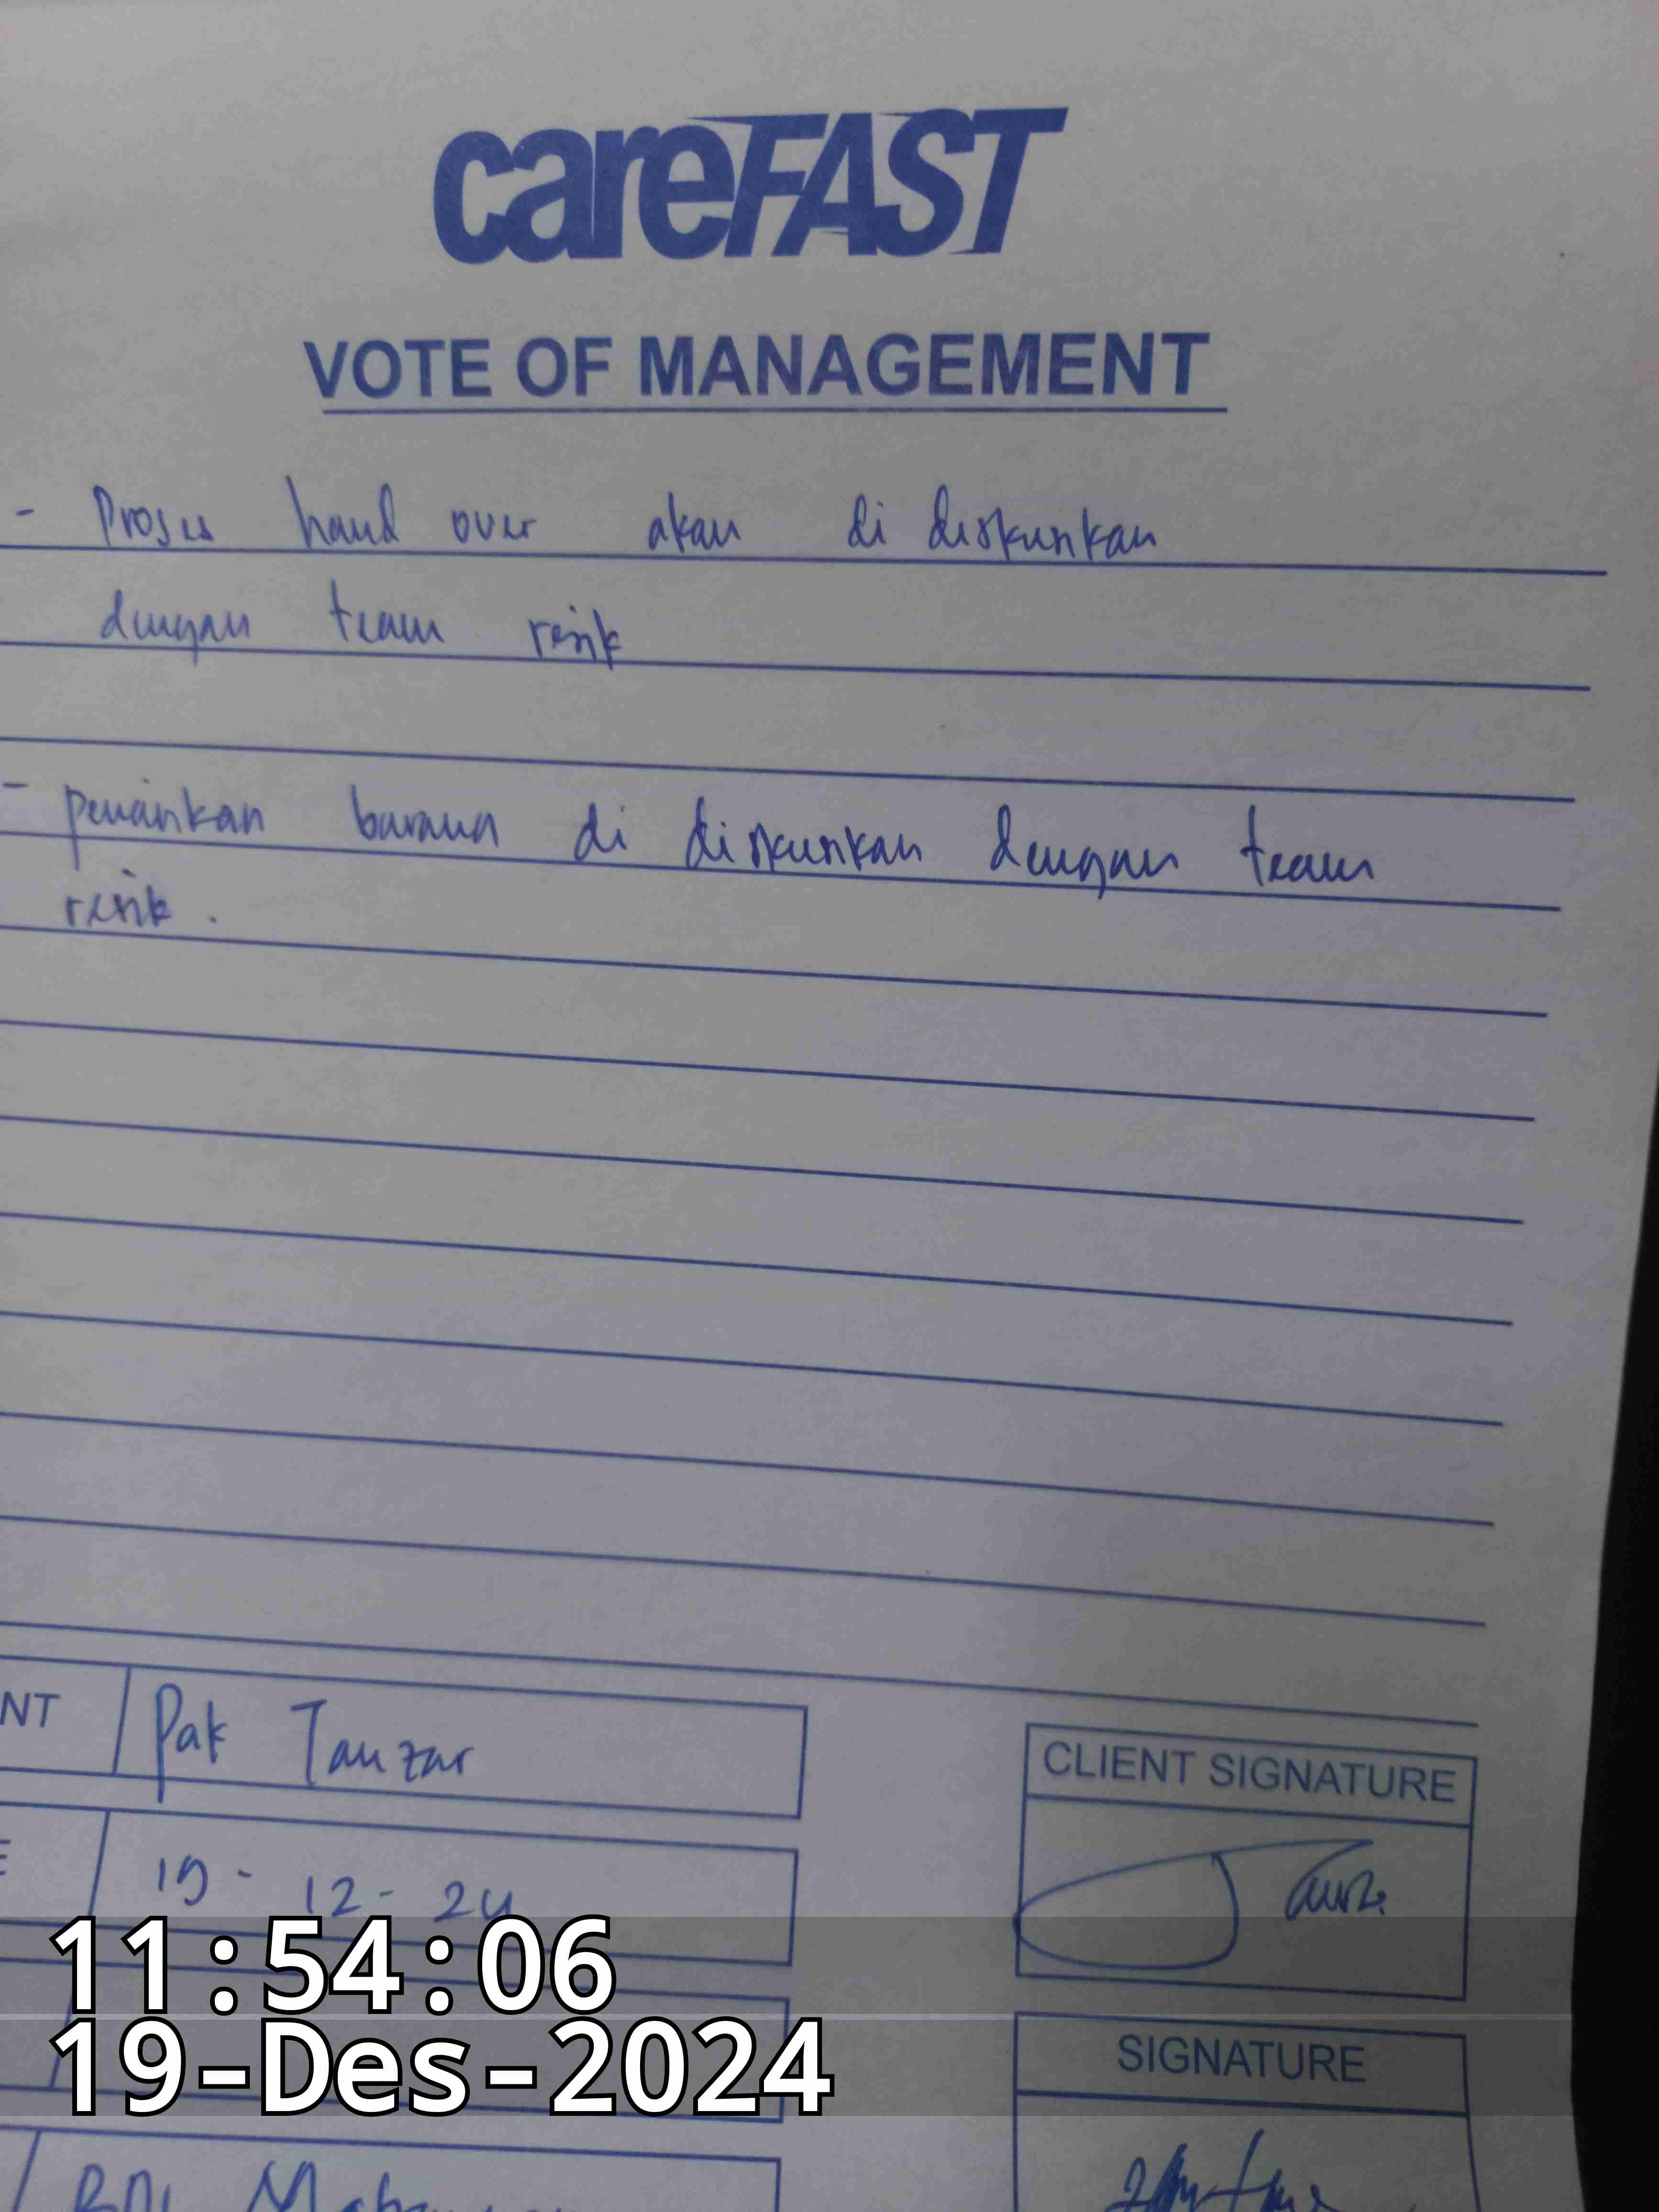 careFAST
VOTE OF MANAGEMENT
- Proses hand over akan di diskusikan
dengan team resik
- penarikan barang di diskusikan dengan team
resik.
NT
Pak Tauzar
CLIENT SIGNATURE
E
19-12-24
11:54:06
19-Des-2024
SIGNATURE